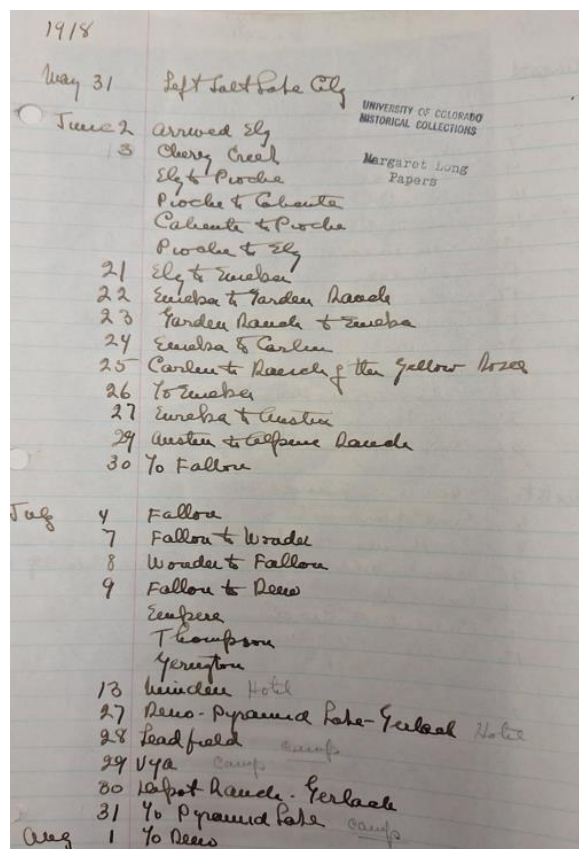 1918
May 31 Left Salt Lake City
UNIVERSITY OF COLORADO
HISTORICAL COLLECTIONS
Margaret Long
Papers
June 2 arrived Ely
3 Cherry Creek
Ely to Pioche
Pioche to Caliente
Caliente to Pioche
Pioche to Ely
21 Ely to Eureka
22 Eureka to Garden Ranch
23 Garden Ranch to Eureka
24 Eureka to Carlin
25 Carlin to Ranch of the Yellow Roses
26 To Eureka
27 Eureka to Austin
29 Austin to Alpine Ranch
30 To Fallon
July 4 Fallon
7 Fallon to Wonder
8 Wonder to Fallon
9 Fallon to Reno
Empire
Thompson
Yerington
13 Minden Hotel
27 Reno - Pyramid Lake - Gerlach Hotel
28 Leadfield camp
29 Vya camp
30 Ranch - Gerlach
31 To Pyramid Lake camp
Aug 1 To Reno